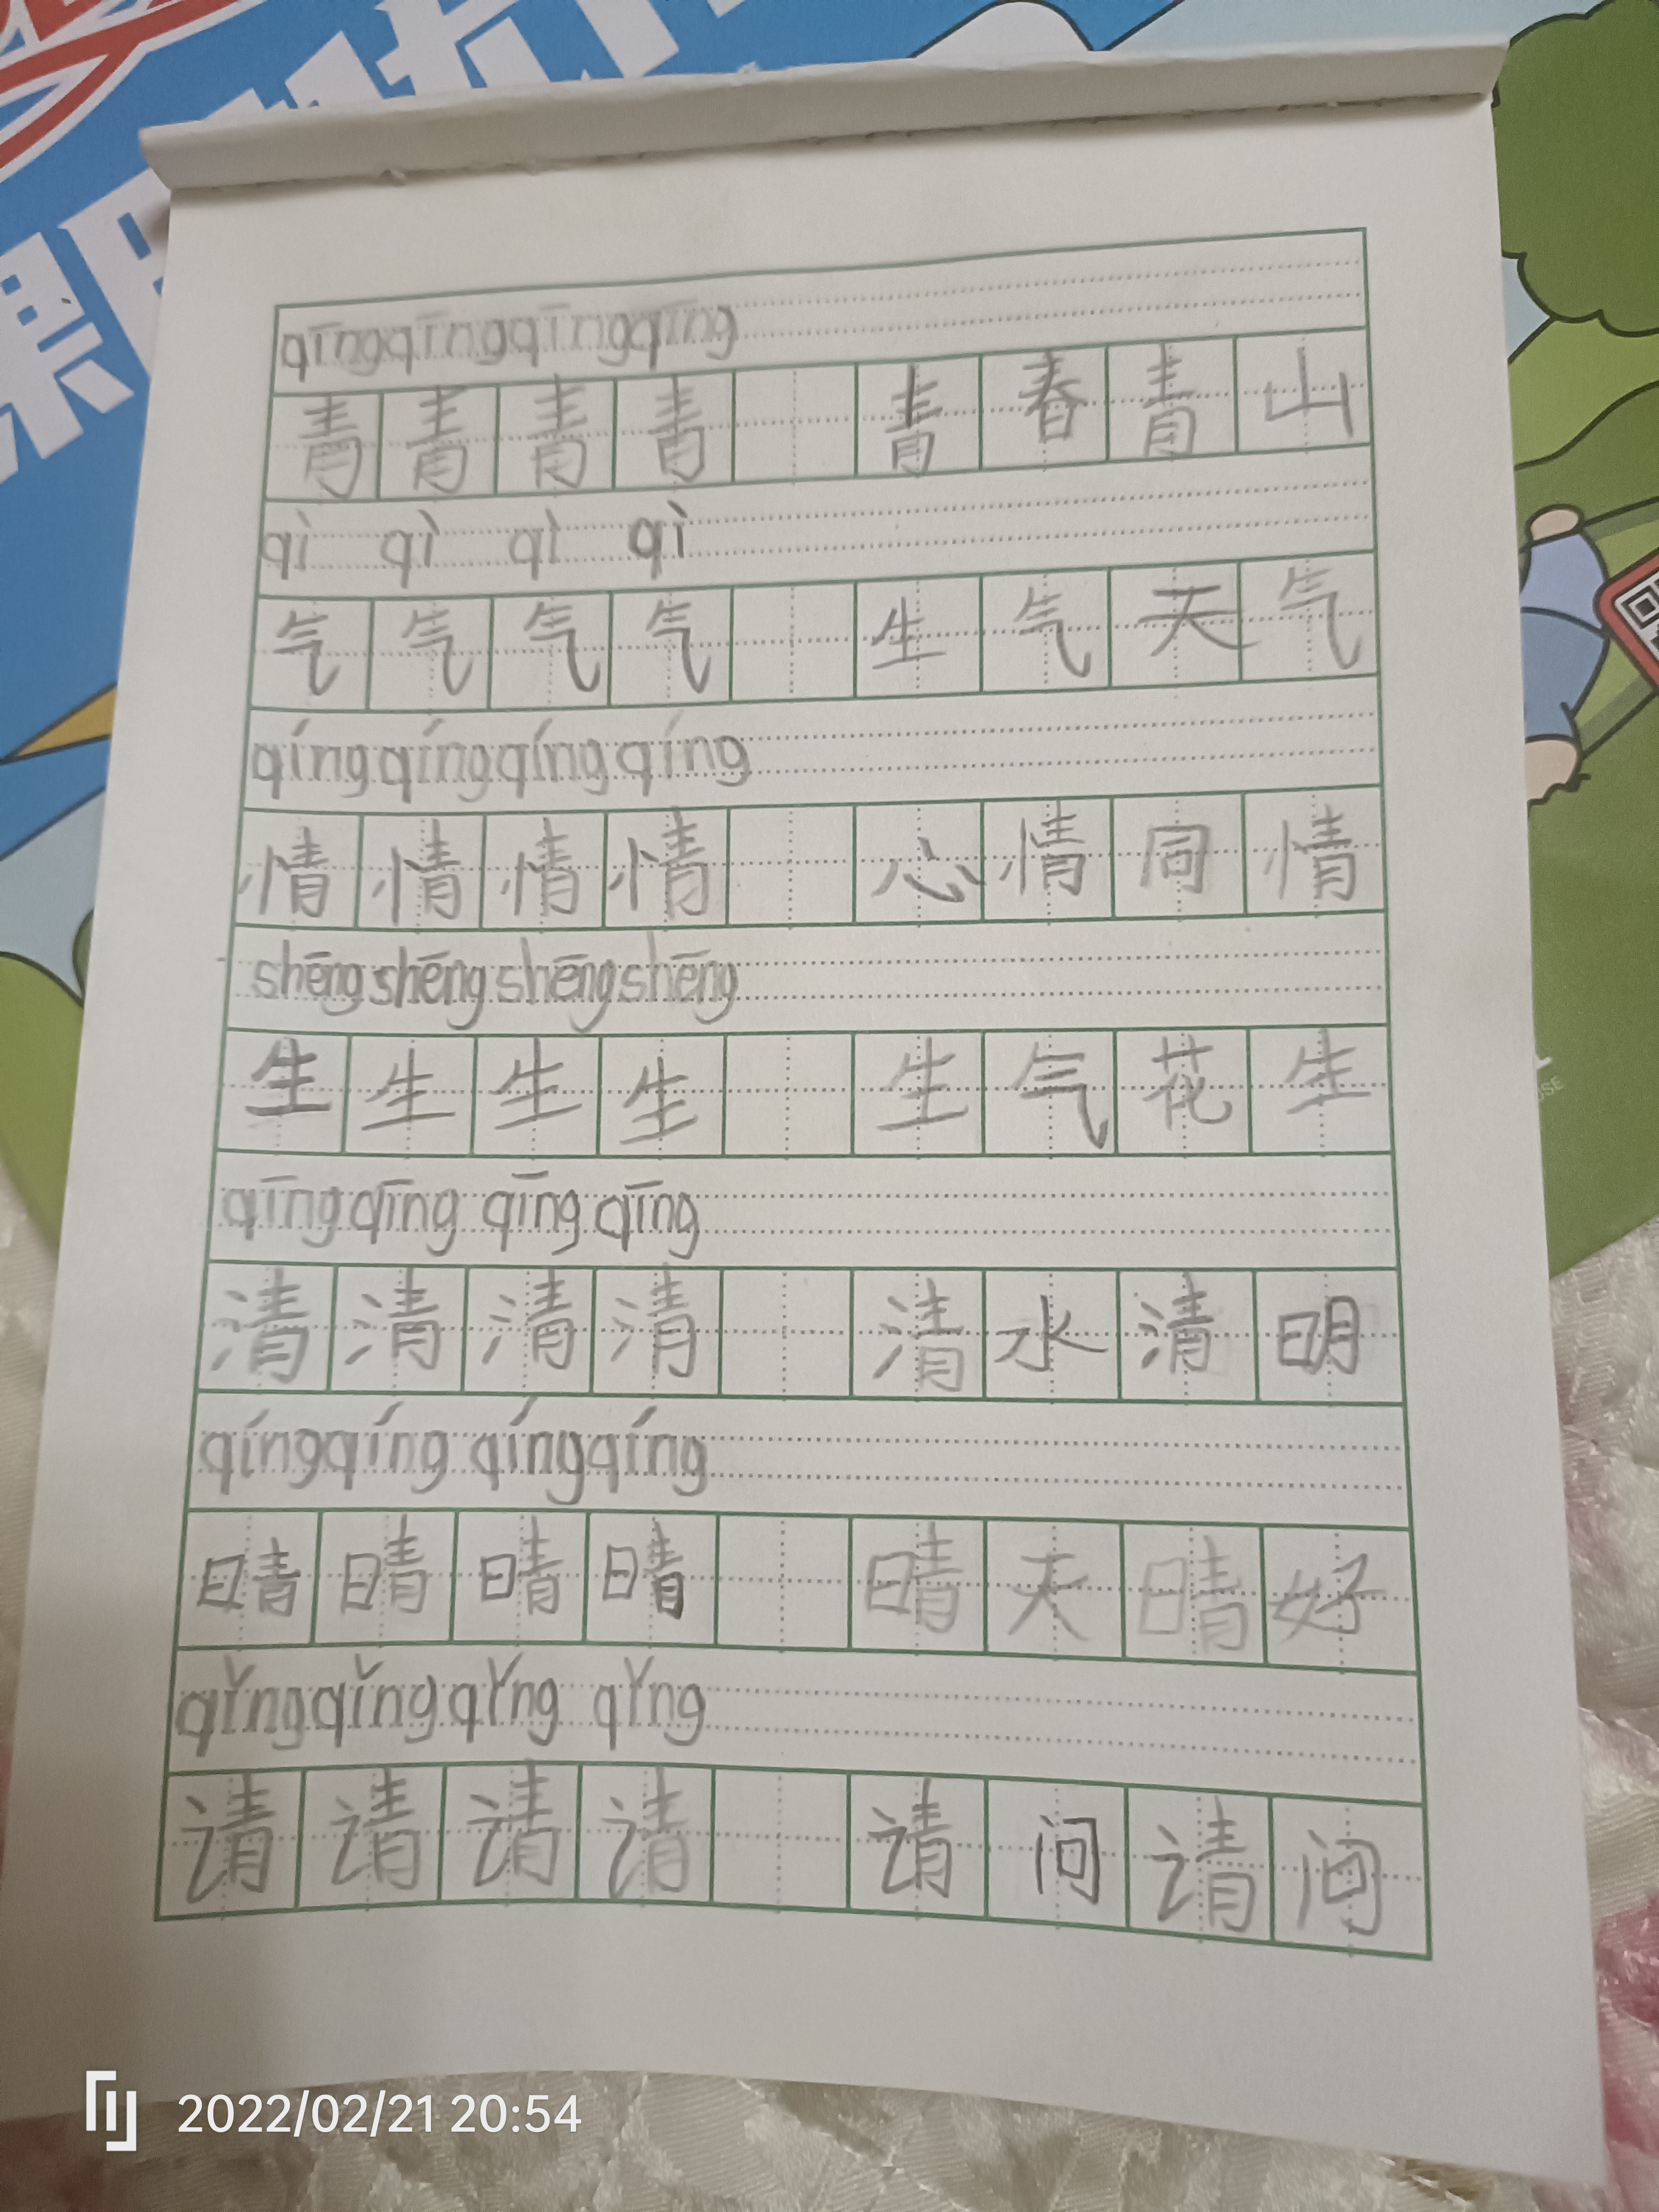 qīng qīng qīng qīng
青 青 青 青 青 春 青 山
qì qì qì qì
气 气 气 气 生 气 天 气
qíng qíng qíng qíng
情 情 情 情 心 情 同 情
shēng shēng shēng shēng
生 生 生 生 生 气 花 生
qīng qīng qīng qīng
清 清 清 清 清 水 清 明
qíng qíng qíng qíng
晴 晴 晴 晴 晴 天 晴 好
qǐng qǐng qǐng qǐng
请 请 请 请 请 问 请 问
2022/02/21 20:54